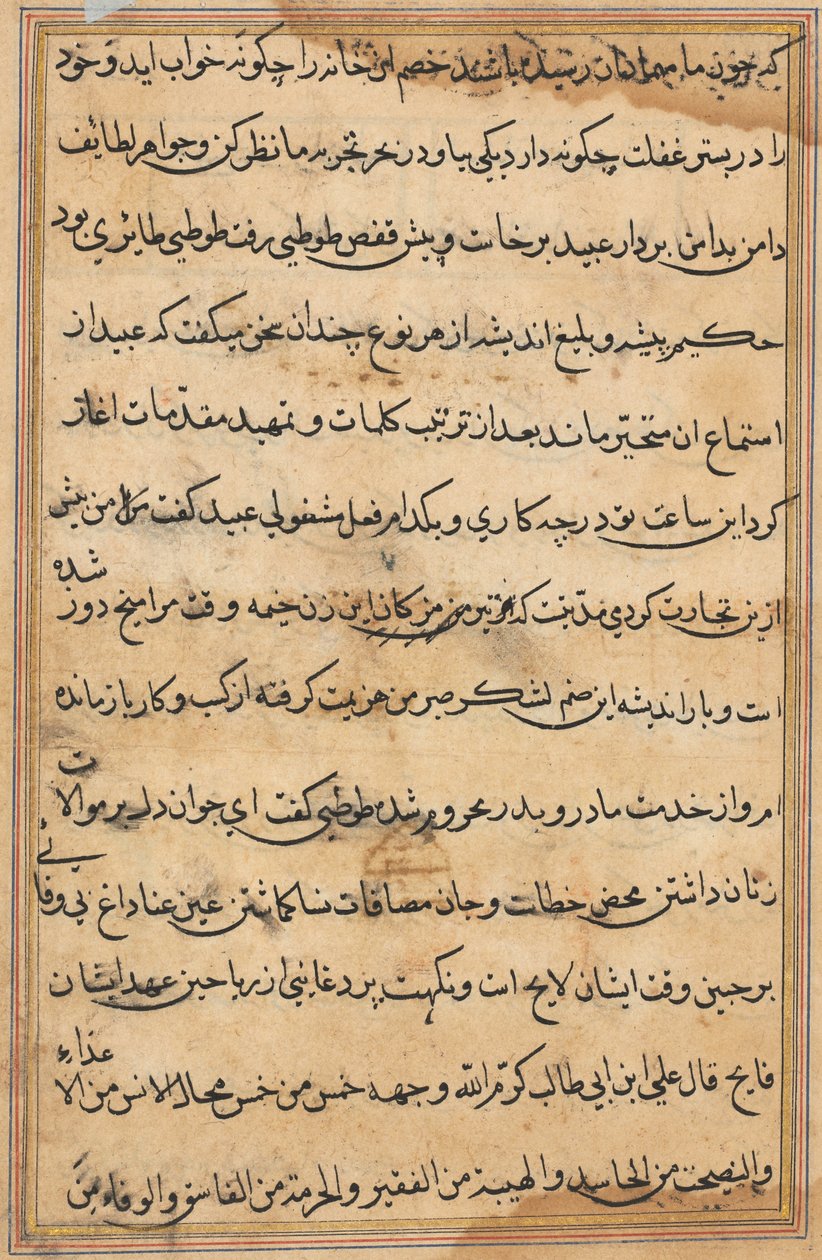 که چون ما مهمانان رسیده باشند خصم این خانه را چکونه خواب اید و خود
را در بستر غفلت چکونه دارد یکی بیا و در بحر تجربه ما نظر کن و جواهر لطائف
دامن بدامن بردار عبید برخاست و پیش قفص طوطیی رفت طوطیی طائری بود
حکیم پیشه و بلیغ اندیشه از هر نوع چندان سخن میکفت که عبید از
استماع ان متحیّر ماند بعد از ترتیب کلمات و تمهید مقدّمات اغاز
کرد این ساعت تو در چه کاری و بکدام فعل مشغولی عبید کفت من پیش
ازین تجارت کردمی مدّتیست که تیر مژکان این زن خیمه وقت مرا میخ دوز شده
است و بار اندیشه این صنم لشکر صبر من هزیمت کرفته از کسب و کار باز مانده
ام و از خدمت مادر و پدر محروم شده طوطی کفت ای جوان دل بر موالات
زنان داشتن محض خطاست و جان مصافات نسا کماشتن عین عنا داغ بی وفائی
بر جبین وقت ایشان لایح است و نکهت پر دغایی از ریاحین عهد ایشان
فایح قال علی ابن ابی طالب کرّم اللّه وجهه خمس من خمس محال الانس من الاعداء
والنصیحت من الحاسد والهیبة من الفقیر والحرمة من الفاسق والوفاء من